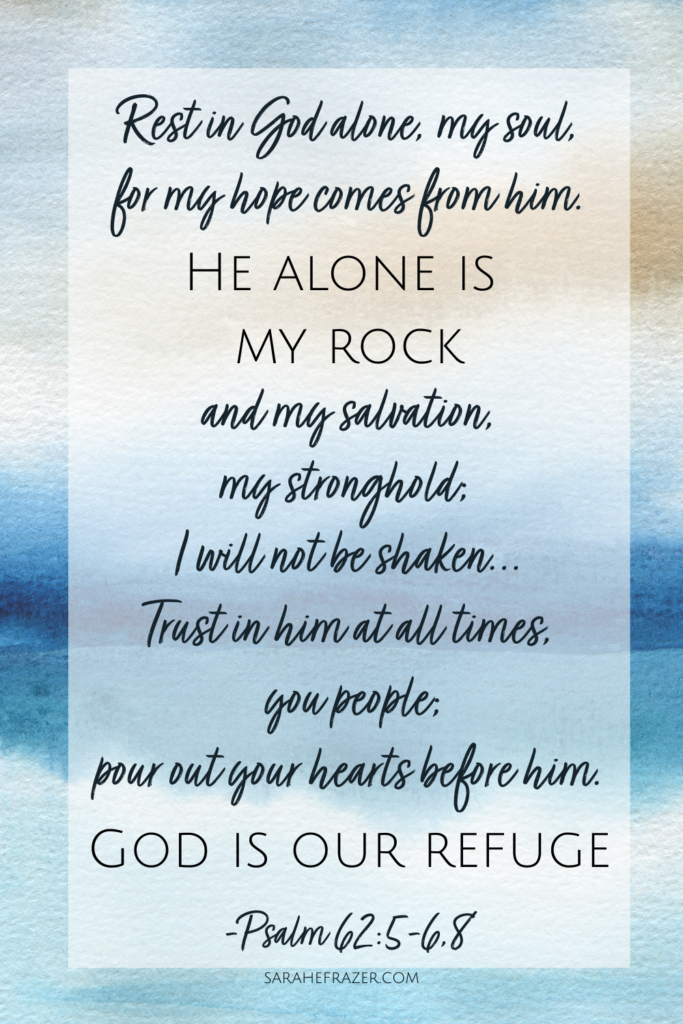 Rest in God alone, my soul,
for my hope comes from him.
He alone is
my rock
and my salvation,
my stronghold;
I will not be shaken...
Trust in him at all times,
you people;
pour out your hearts before him.
God is our refuge
-Psalm 62:5-6,8
SARAHEFRAZER.COM